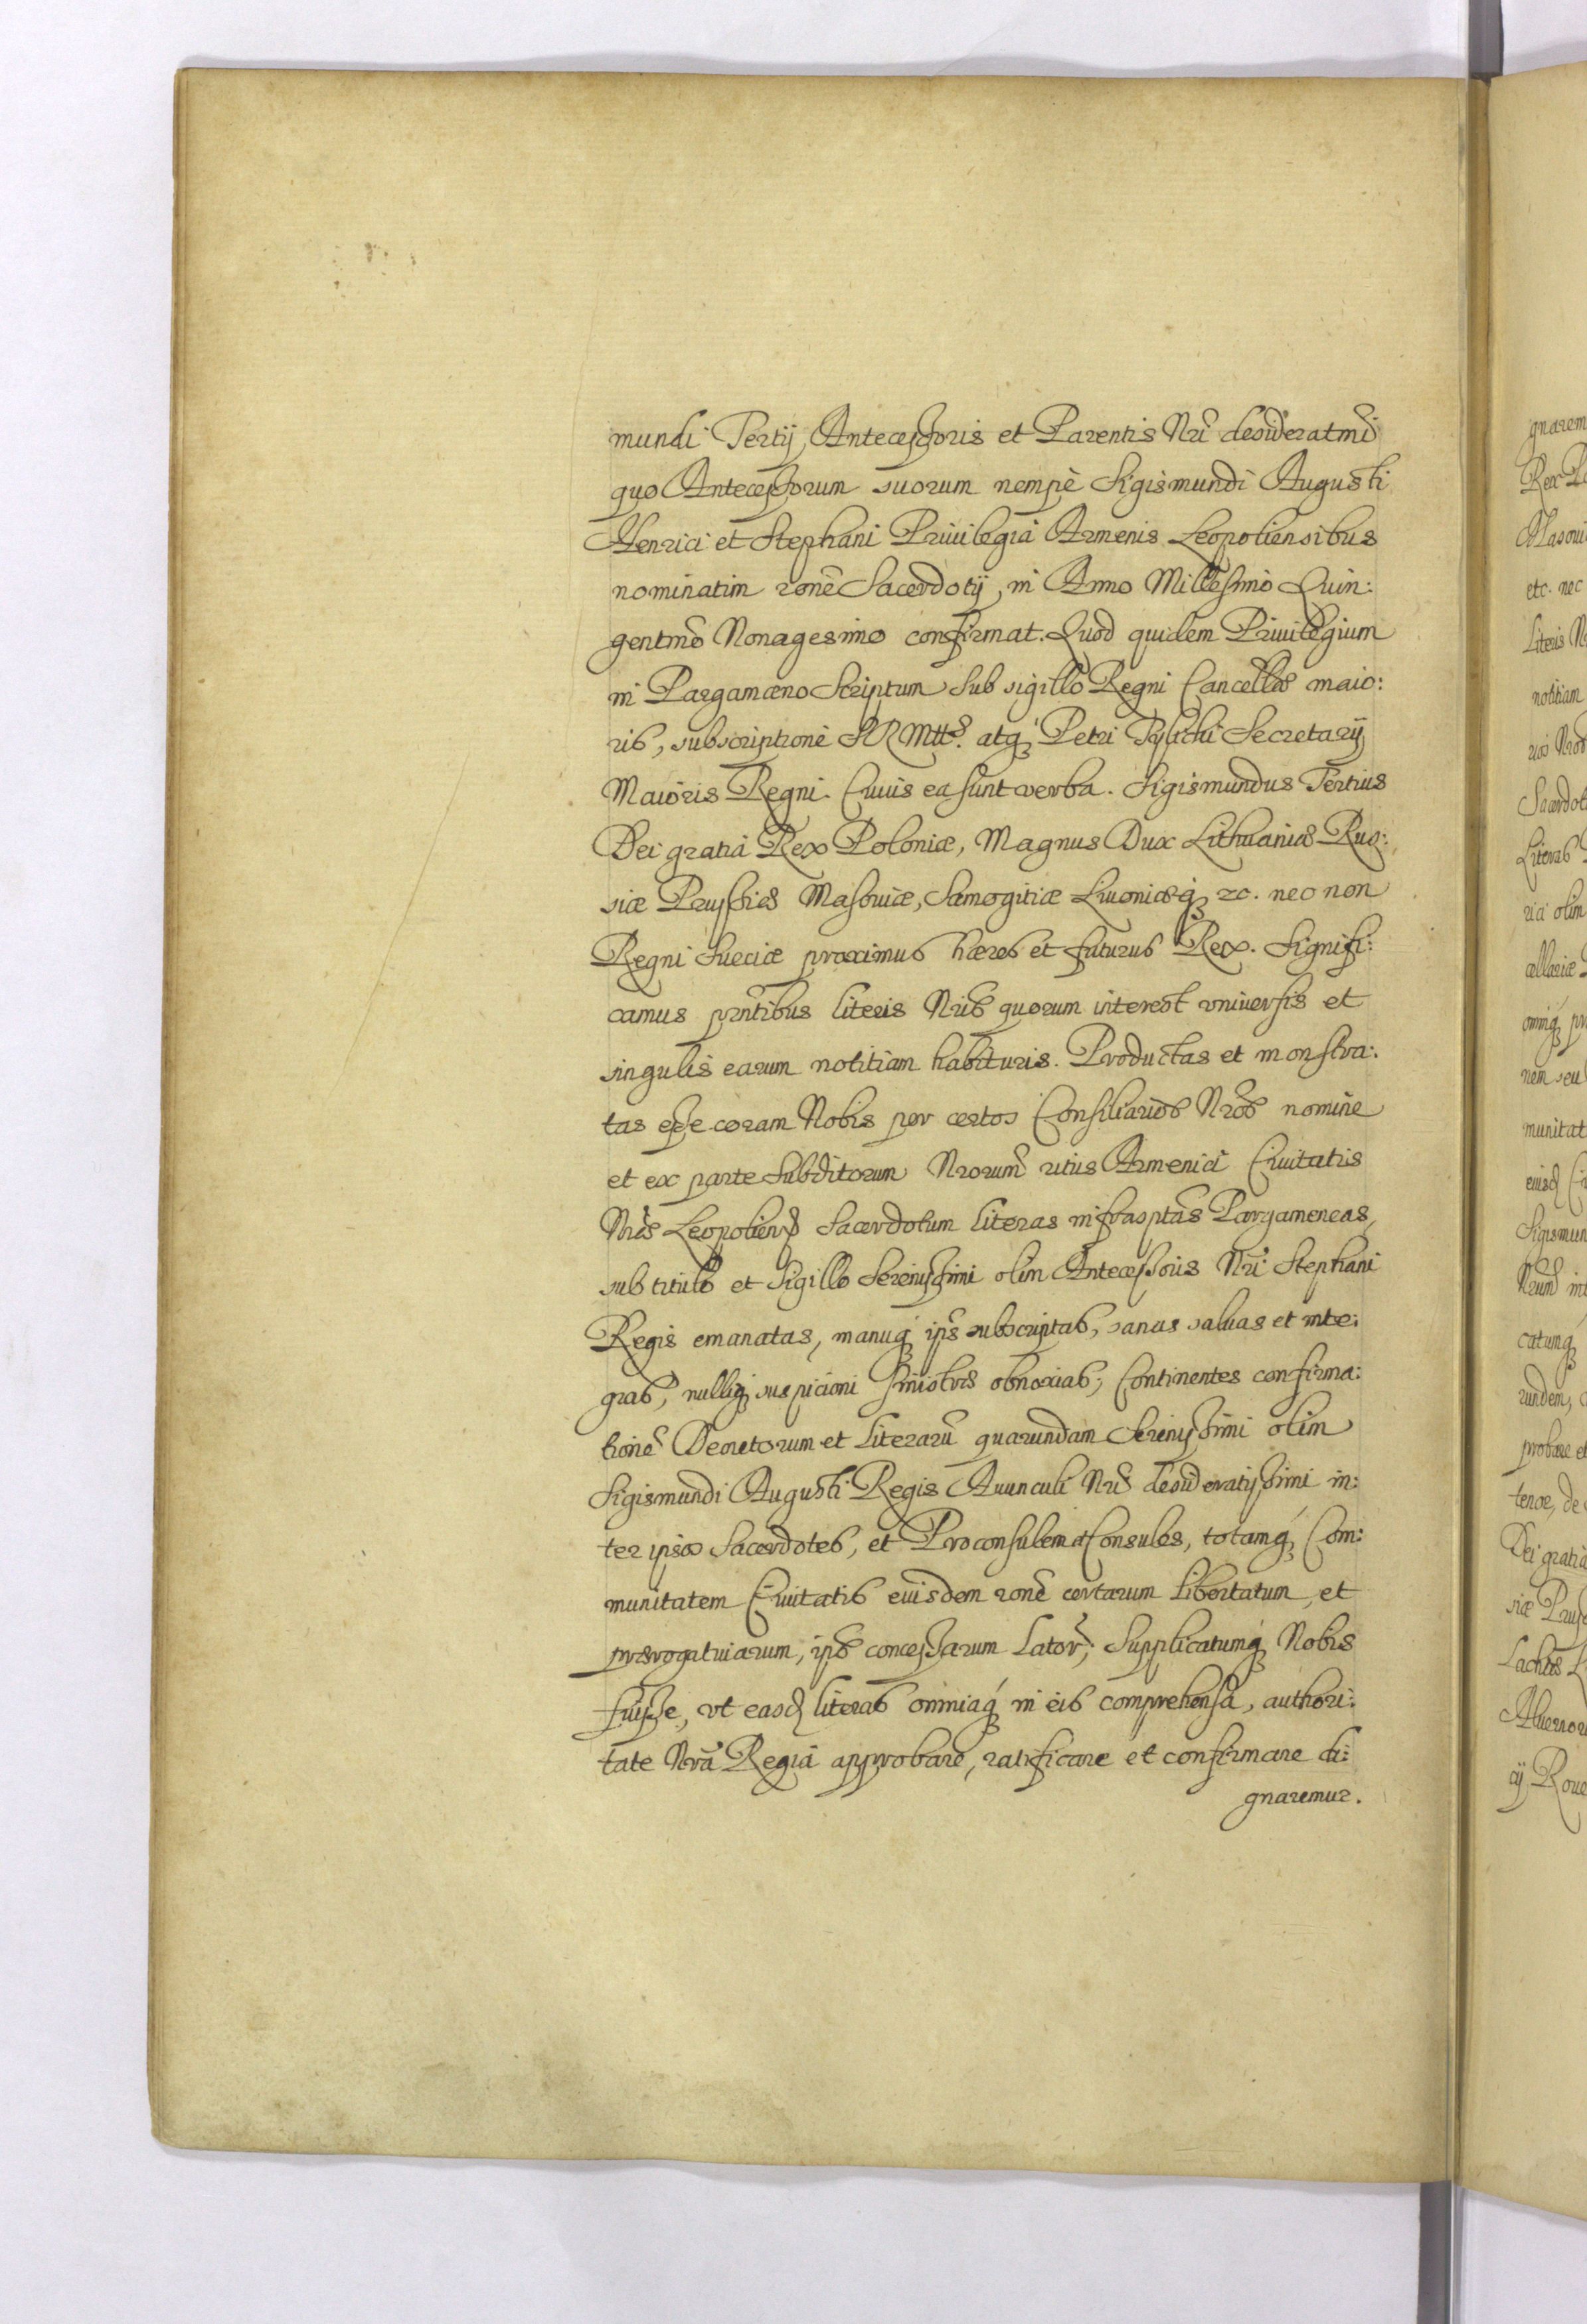 mundi Tertij Antecessoris et Parentis Nri desideratmi
quo Antecessorum suorum nempè Sigismundi Augusti
Henrici et Stephani Priuilegia Armenis Leopoliensibus
nominatim rone Sacerdotij, in Anno Millesimo Quin:
gentmo Nonagesimo confirmat. Quod quidem Priuilegium
in Pargamæno Scriptum sub sigillo Regni Cancellæ maio:
ris, subscriptione SRMttis. atq Petri Tylicki Secretarij
Maioris Regni. Cuius ea sunt verba. Sigismundus Tertius
Dei gratia Rex Poloniæ, Magnus Dux Lithuaniæ Rus:
siæ Prussiæ Masouiæ, Samogitiæ Liuoniæq zc. nec non
Regni Sueciæ proximus hæres et futurus Rex. Signifi:
camus pntibus literis Nris quorum interest vniuersis et
singulis earum notitiam habituris. Productas et monstra:
tas esse coram Nobis per certos Consiliarios Nros nomine
et ex parte subditorum Nrorum ritus Armenici Ciuitatis
Nræ Leopolien Sacerdotum literas infrasptas Pargameneas,
sub titulo et Sigillo Serenissimi olim Antecessoris Nri Stephani
Regis emanatas, manuq ips subscriptas, sanas saluas et inte:
gras, nulliq suspicioni sinistræ obnoxias, Continentes confirma:
tione Decretorum et Literaru quarundam Serenissimi olim
Sigismundi Augusti Regis Auunculi Nri desideratissimi in:
ter ipsos Sacerdotes, et Proconsulem et Consules, totamq Com:
munitatem Ciuitatis eiusdem rone certarum Libertatum, et
prærogatiuarum, ips concessarum Lator, Supplicatumq Nobis
fuisse, vt easd literas omniaq in eis comprehensa, authori:
tate Nra Regia approbare, ratificare et confirmare di:
gnaremur.
gnarem
Rex
Masoui
etc. nec
Literis
notitiam
Sacerdot
Literas
rici olim
cellariæ
omniq
nem seu
munitat
Sigismun
catumq
rundem,
probare et
tenoe, de
Dei gratia
siæ